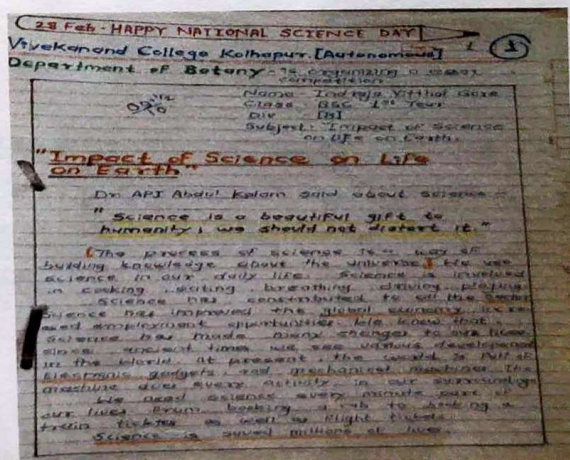 28 Feb - HAPPY NATIONAL SCIENCE DAY
1
Vivekanand College Kolhapur. [Autonomous]
Department of Botany - is organizing a essay
competition.
Name Indraja Vitthal Gore
Class BSC 1st Year
Div [B]
Subject: Impact of Science
on Life on Earth.
"Impact of Science on Life
on Earth"
Dr. APJ Abdul Kalam said about science -
"Science is a beautiful gift to
humanity; we should not distort it."
[The process of science is a way of
building knowledge about the universe] We use
science in our daily life. Science is involved
in cooking, eating breathing driving playing
Science has constributed to all the sector
Science has improved the global economy incre-
ased employment opportunities. We know that
Science has made many changes to our lives
since ancient times we see various developement
in the World at present the world is full of
Electronic gadgets and mechanical machines The
machine does every activity in our surroundings
We need science every minute part of
our lives from booking a cab to booking a
train tickets as well as flight tickets.
Science is saved millions of lives